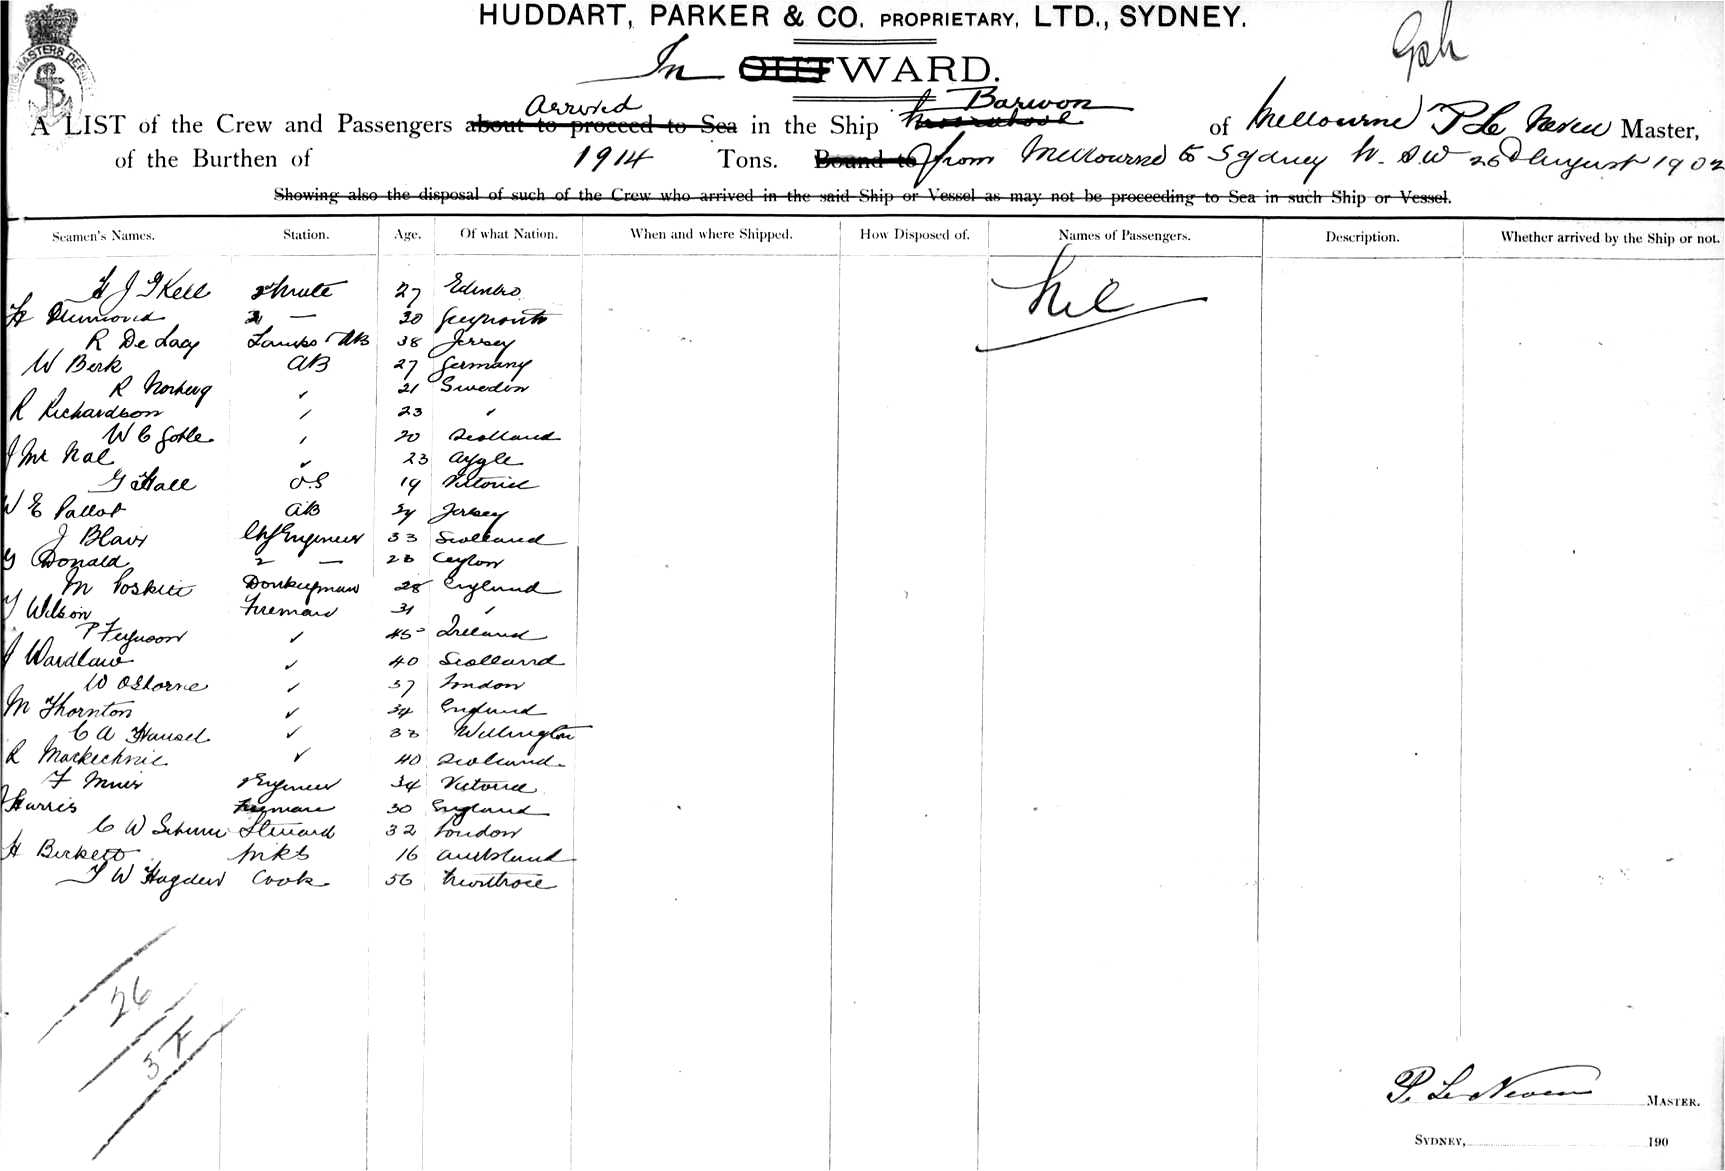 HUDDART, PARKER & CO. PROPRIETARY, LTD., SYDNEY.
In OUTWARD.
A LIST of the Crew and Passengers about to proceed to Sea arrived in the Ship Barwon of Melbourne P Le Neveu Master,
of the Burthen of 1914 Tons. Bound to from Melbourne to Sydney N.S.W 26 August 1902
Showing also the disposal of such of the Crew who arrived in the said Ship or Vessel as may not be proceeding to Sea in such Ship or Vessel.
Seamen's Names. Station. Age. Of what Nation. When and where Shipped. How Disposed of. Names of Passengers. Description. Whether arrived by the Ship or not.
Nil
Kell Mate 27 Edinbro
2 — 30
R De Lacy Lamps & AB 38 Jersey
W Berk AB 27 Germany
R Norberg " 21 Sweden
R Richardson " 23 "
W C Goble " 20 Scotland
J Mc Nal " 23 Argyle
G Hall O.S 19 Victoria
W E Pallot AB 24 Jersey
J Blair Chf Engineer 33 Scotland
G Donald 2 — 28 Ceylon
M Donkeyman 28 England
J Wilson Fireman 31 "
P Ferguson " 45 Ireland
J Wardlaw " 40 Scotland
W Osborne " 37 London
M Thornton " 34 England
C A Hansel " 33 Wellington
R Mackechnie " 40 Scotland
F Muir Engineer 34 Victoria
J Harris Fireman 30 England
C W Steward 32 London
H Birkett 16 Auckland
T W Hayden Cook 56 Montrose
26
3 F
P. Le Neveu MASTER.
SYDNEY, 190